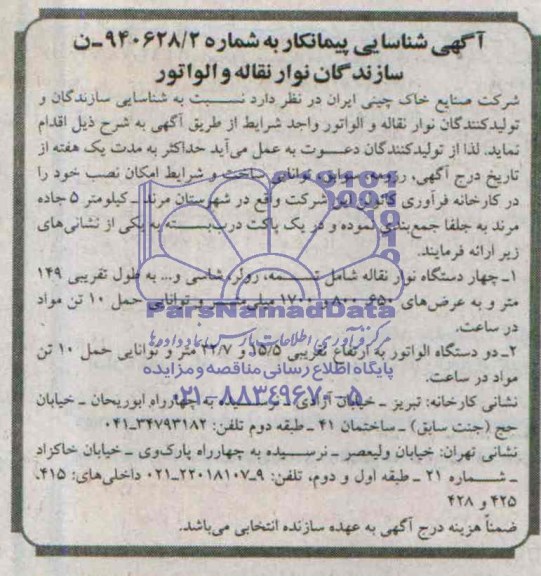 آگهی شناسایی پیمانکار به شماره ۹۴۰۶۲۸/۲-ن
سازندگان نوار نقاله و الواتور
شرکت صنایع خاک چینی ایران در نظر دارد نسبت به شناسایی سازندگان و
تولیدکنندگان نوار نقاله و الواتور واجد شرایط از طریق آگهی به شرح ذیل اقدام
نماید. لذا از تولیدکنندگان دعوت به عمل می‌آید حداکثر به مدت یک هفته از
تاریخ درج آگهی، رزومه، سوابق، توانایی ساخت و شرایط امکان نصب خود را
در کارخانه فرآوری کائولن این شرکت واقع در شهرستان مرند ـ کیلومتر ۵ جاده
مرند به جلفا جمع‌بندی نموده و در یک پاکت درب‌بسته به یکی از نشانی‌های
زیر ارائه فرمایند.
۱ـ چهار دستگاه نوار نقاله شامل تسمه، رولر، شاسی و... به طول تقریبی ۱۴۹
متر و به عرض‌های ۶۵۰، ۸۰۰ و ۱۷۰۰ میلی‌متر و توانایی حمل ۱۰ تن مواد
در ساعت.
ParsNamadData
مرکز فرآوری اطلاعات پارس نماد داده‌ها
۲ـ دو دستگاه الواتور به ارتفاع تقریبی ۱۵/۵ و ۲۲/۷ متر و توانایی حمل ۱۰ تن
پایگاه اطلاع رسانی مناقصه و مزایده
مواد در ساعت.
۰۲۱-۸۸۳۴۹۶۷۰-۵
نشانی کارخانه: تبریز ـ خیابان آزادی ـ نرسیده به چهارراه ابوریحان ـ خیابان
حج (جنت سابق) ـ ساختمان ۴۱ ـ طبقه دوم تلفن: ۳۴۷۹۳۱۸۲-۰۴۱
نشانی تهران: خیابان ولیعصر ـ نرسیده به چهارراه پارک‌وی ـ خیابان خاکزاد
ـ شماره ۲۱ ـ طبقه اول و دوم، تلفن: ۹-۲۲۰۱۸۱۰۷-۰۲۱ داخلی‌های: ۴۱۵،
۴۲۵ و ۴۲۸
ضمناً هزینه درج آگهی به عهده سازنده انتخابی می‌باشد.